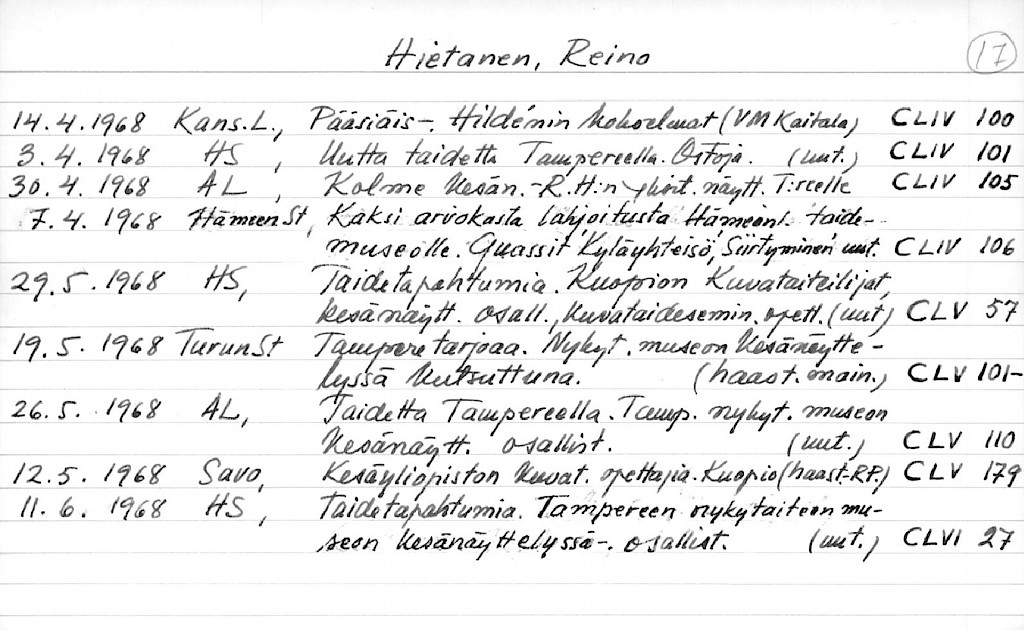 Hietanen, Reino 17
14.4.1968 Kans.L., Pääsiäis-. Hildénin kokoelmat (VM Kaitala) CLIV 100
3.4.1968 HS, Uutta taidetta Tampereella. Ostoja. (uut.) CLIV 101
30.4.1968 AL, Kolme Kesän.-R.H:n yksit. näytt. T:reelle CLIV 105
7.4.1968 HämeenSt, Kaksi arvokasta lahjoitusta Hämeenl. taide-
museolle. Guassit "Kyläyhteisö", "Siirtyminen" uut. CLIV 106
29.5.1968 HS, Taidetapahtumia. Kuopion Kuvataiteilijat,
kesänäytt. osall., kuvataidesemin. opett. (uut) CLV 57
19.5.1968 TurunSt Tampere tarjoaa. Nykyt. museon Kesänäytte-
lyssä kutsuttuna. (haast. main.) CLV 101-
26.5.1968 AL, Taidetta Tampereella. Tamp. nykyt. museon
Kesänäytt. osallist. (uut.) CLV 110
12.5.1968 Savo, Kesäyliopiston Kuvat. opettajia. Kuopio (haast.-RP.) CLV 179
11.6.1968 HS, Taidetapahtumia. Tampereen nykytaiteen mu-
seon Kesänäyttelyssä-. osallist. (uut.) CLVI 27